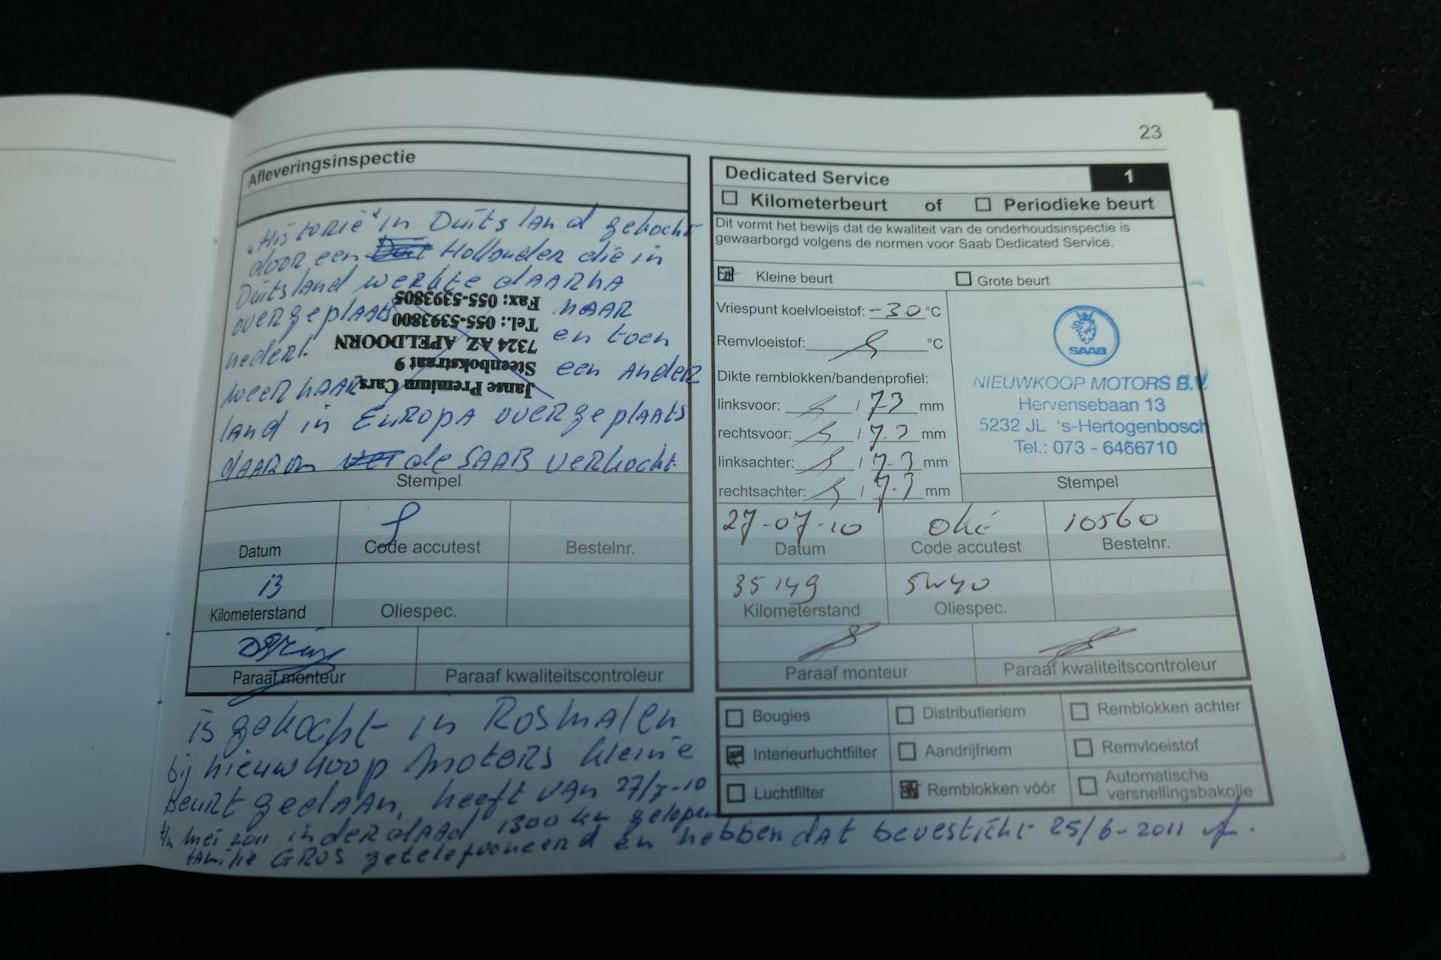 23
Afleveringsinspectie
"Historie" in Duitsland gekocht
door een Hollander die in
Duitsland werkte daarna
overgeplaatst naar
nederl. en toen
weer naar een ander
land in Europa overgeplaatst
daarom de SAAB verkocht
Janse Premium Cars
Steenbokstraat 9
7324 AZ APELDOORN
Tel.: 055-5393800
Fax: 055-5393805
Stempel
Datum
Code accutest
Bestelnr.
13
Kilometerstand
Oliespec.
Paraaf monteur
Paraaf kwaliteitscontroleur
is gekocht in Rosmalen
bij nieuwkoop motors kleine
beurt gedaan, heeft van 27/7-10
t/m mei 2011 inderdaad 1300 km gelopen
familie GROS getelefoneerd en hebben dat bevesticht 25/6-2011
Dedicated Service
1
Kilometerbeurt of Periodieke beurt
Dit vormt het bewijs dat de kwaliteit van de onderhoudsinspectie is
gewaarborgd volgens de normen voor Saab Dedicated Service.
Kleine beurt
Grote beurt
Vriespunt koelvloeistof: -30 °C
Remvloeistof: °C
Dikte remblokken/bandenprofiel:
linksvoor: / 7.3 mm
rechtsvoor: / 7.3 mm
linksachter: / 7.3 mm
rechtsachter: / 7.3 mm
SAAB
NIEUWKOOP MOTORS B.V.
Hervensebaan 13
5232 JL 's-Hertogenbosch
Tel.: 073 - 6466710
Stempel
27-07-10 oké 10560
Datum Code accutest Bestelnr.
35149 5w40
Kilometerstand Oliespec.
Paraaf monteur
Paraaf kwaliteitscontroleur
Bougies Distributieriem Remblokken achter
Interieurluchtfilter Aandrijfriem Remvloeistof
Luchtfilter Remblokken vóór Automatische
versnellingsbakolie